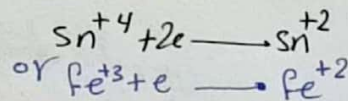 Sn⁺⁴ + 2e ⟶ Sn⁺²
or fe⁺³ + e ⟶ fe⁺²